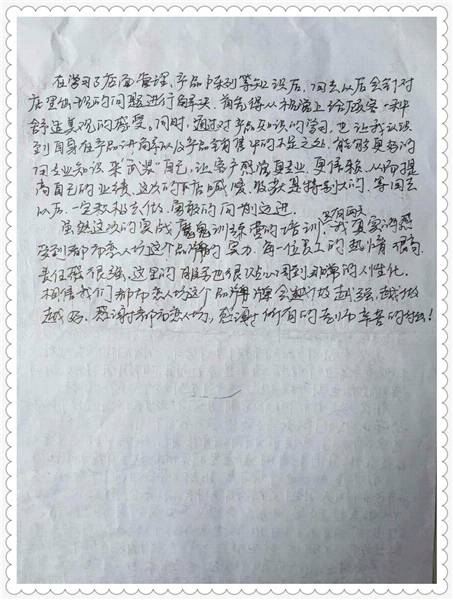 在学习了店面管理、产品陈列等知识后，回去以后会针对
店里出现的问题进行解决，首先得从视觉上给顾客一种
舒适美观的感受。同时，通过对产品知识的学习，也让我认识
到自身在产品讲解以及产品销售中的不足之处，能够更多的
用专业知识来“武装”自己，让客户感觉更专业，更信赖，从而提
高自己的业绩，这次的下店感受，收获是特别大的，等回去
以后，一定积极去做，勇敢的向前迈进。
虽然这次的实战魔鬼训练营的培训只有两天，我真实的感
受到都市恋人坊这个品牌的实力，每一位员工的热情很高，
责任感很强，这里的服务也很贴心周到
相信我们都市恋人坊这个品牌会越做越强，越做
越好。感谢都市恋人坊，感谢所有的老师辛苦的付出！